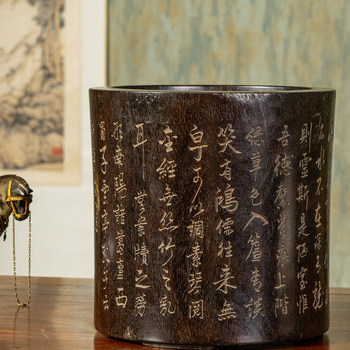 水不在深有龍
則靈斯是陋室惟
吾德馨苔痕上階
綠草色入簾青談
笑有鴻儒往來無
白丁可以調素琴閱
金經無絲竹之亂
耳無案牘之勞
形南陽諸葛廬西
蜀子雲亭